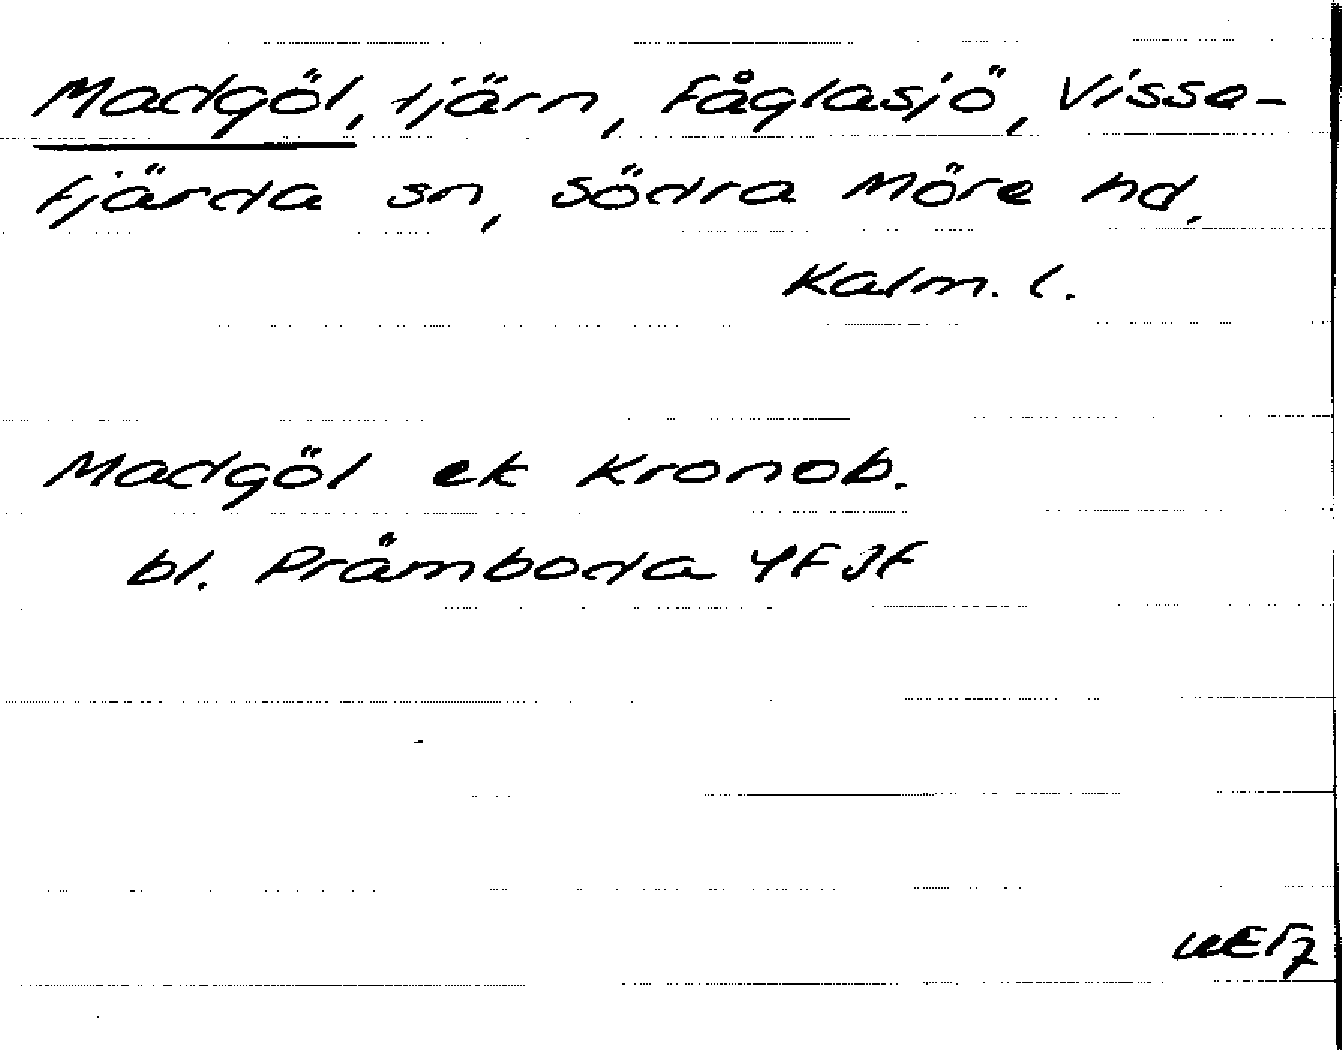 Madgöl, tjärn, Fåglasjö, Visse-
fjärda sn, Södra Möre hd,
Kalm. l.
Madgöl ek Kronob.
bl. Pråmboda 4F JF